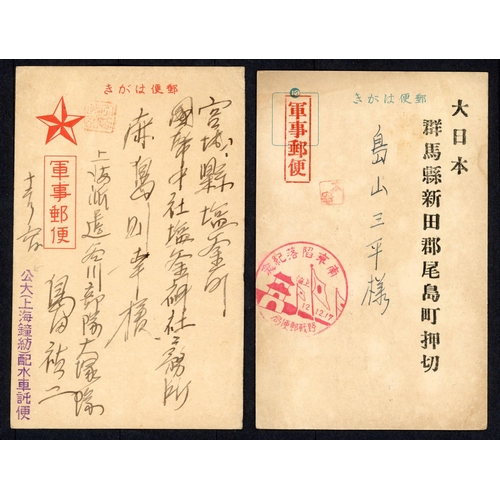 郵便はがき
宮城縣塩釜町
國幣中社塩釜神社々務所
上海派遣谷川部隊大塚隊
軍事郵便
公大上海鐘紡配水車託便
郵便はがき
大日本
群馬縣新田郡尾島町押切
島山三平様
軍事郵便
南京陥落紀念
12.12.17
野戰郵便局